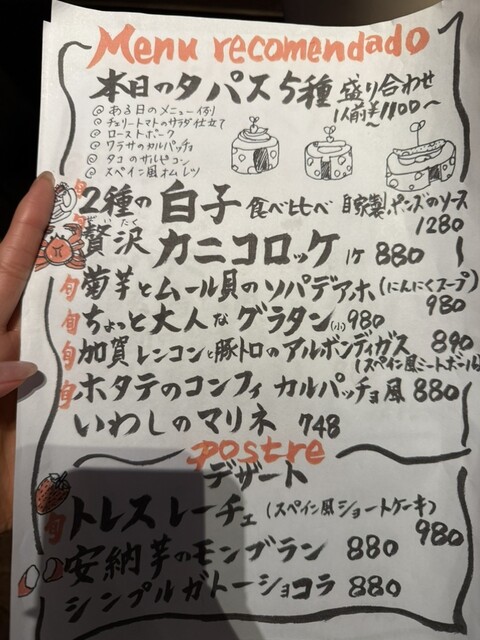 Menu recomendado
本日のタパス5種 盛り合わせ
1人前¥1100〜
@ ある日のメニュー例
@ チェリートマトのサラダ仕立て
@ ローストポーク
@ ワラサのカルパッチョ
@ タコのサルピコン
@ スペイン風オムレツ
旬 2種の白子 食べ比べ 自家製ポンズのソース
1280
贅沢 カニコロッケ 1ケ 880
ぜいたく
旬 菊芋とムール貝のソパデアホ(にんにくスープ)
980
旬 ちょっと大人なグラタン(小) 980
旬 加賀レンコンと豚トロのアルボンディガス 890
(スペイン風ミートボール)
旬 ホタテのコンフィ カルパッチョ風 880
いわしのマリネ 748
postre
デザート
旬 トレスレーチェ(スペイン風ショートケーキ)
980
安納芋のモンブラン 880
シンプルガトーショコラ 880